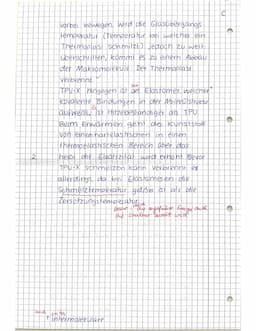 C
vorbei bewegen. Wird die Glasübergangs
temperatur (Temperatur bei welcher ein
Thermoplast schmilzt) jedoch zu weit
überschritten, kommt es zu einem Abbau
der Makromoleküle. Der Thermoplast
verbrennt.
TPU-X hingegen ist ein Elastomer, welcher
kovalente Bindungen in der
ist hitzebeständiger als TPU.
Beim Erwärmen geht der Kunststoff
von einem hartelastischen in einen
thermoelastischen Bereich über, das
heißt die Elastizität wird erhöht. Bevor
2
TPU-X schmelzen kann verbrennt er
allerdings, da bei Elastomeren die
Schmelztemperatur größer ist als die
Zersetzungstemperatur.
zugeführte Energie auch
intermolekular